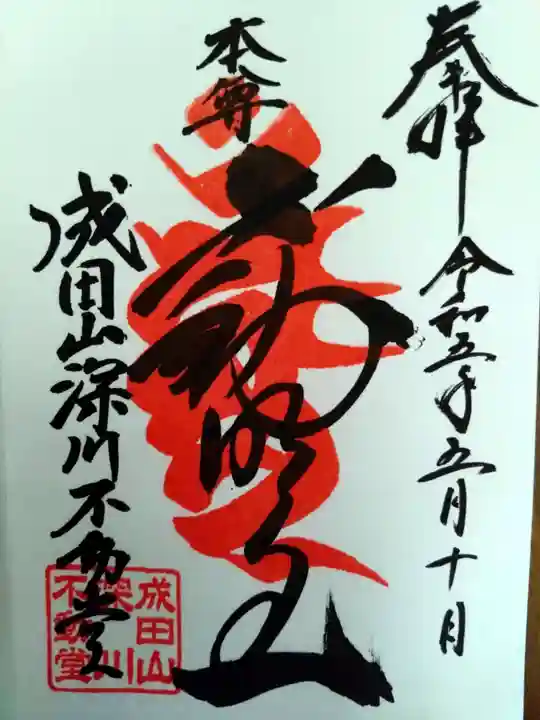 奉拝
令和五年五月十日
本尊
不動明王
成田山深川不動堂
成田山
深川
不動堂